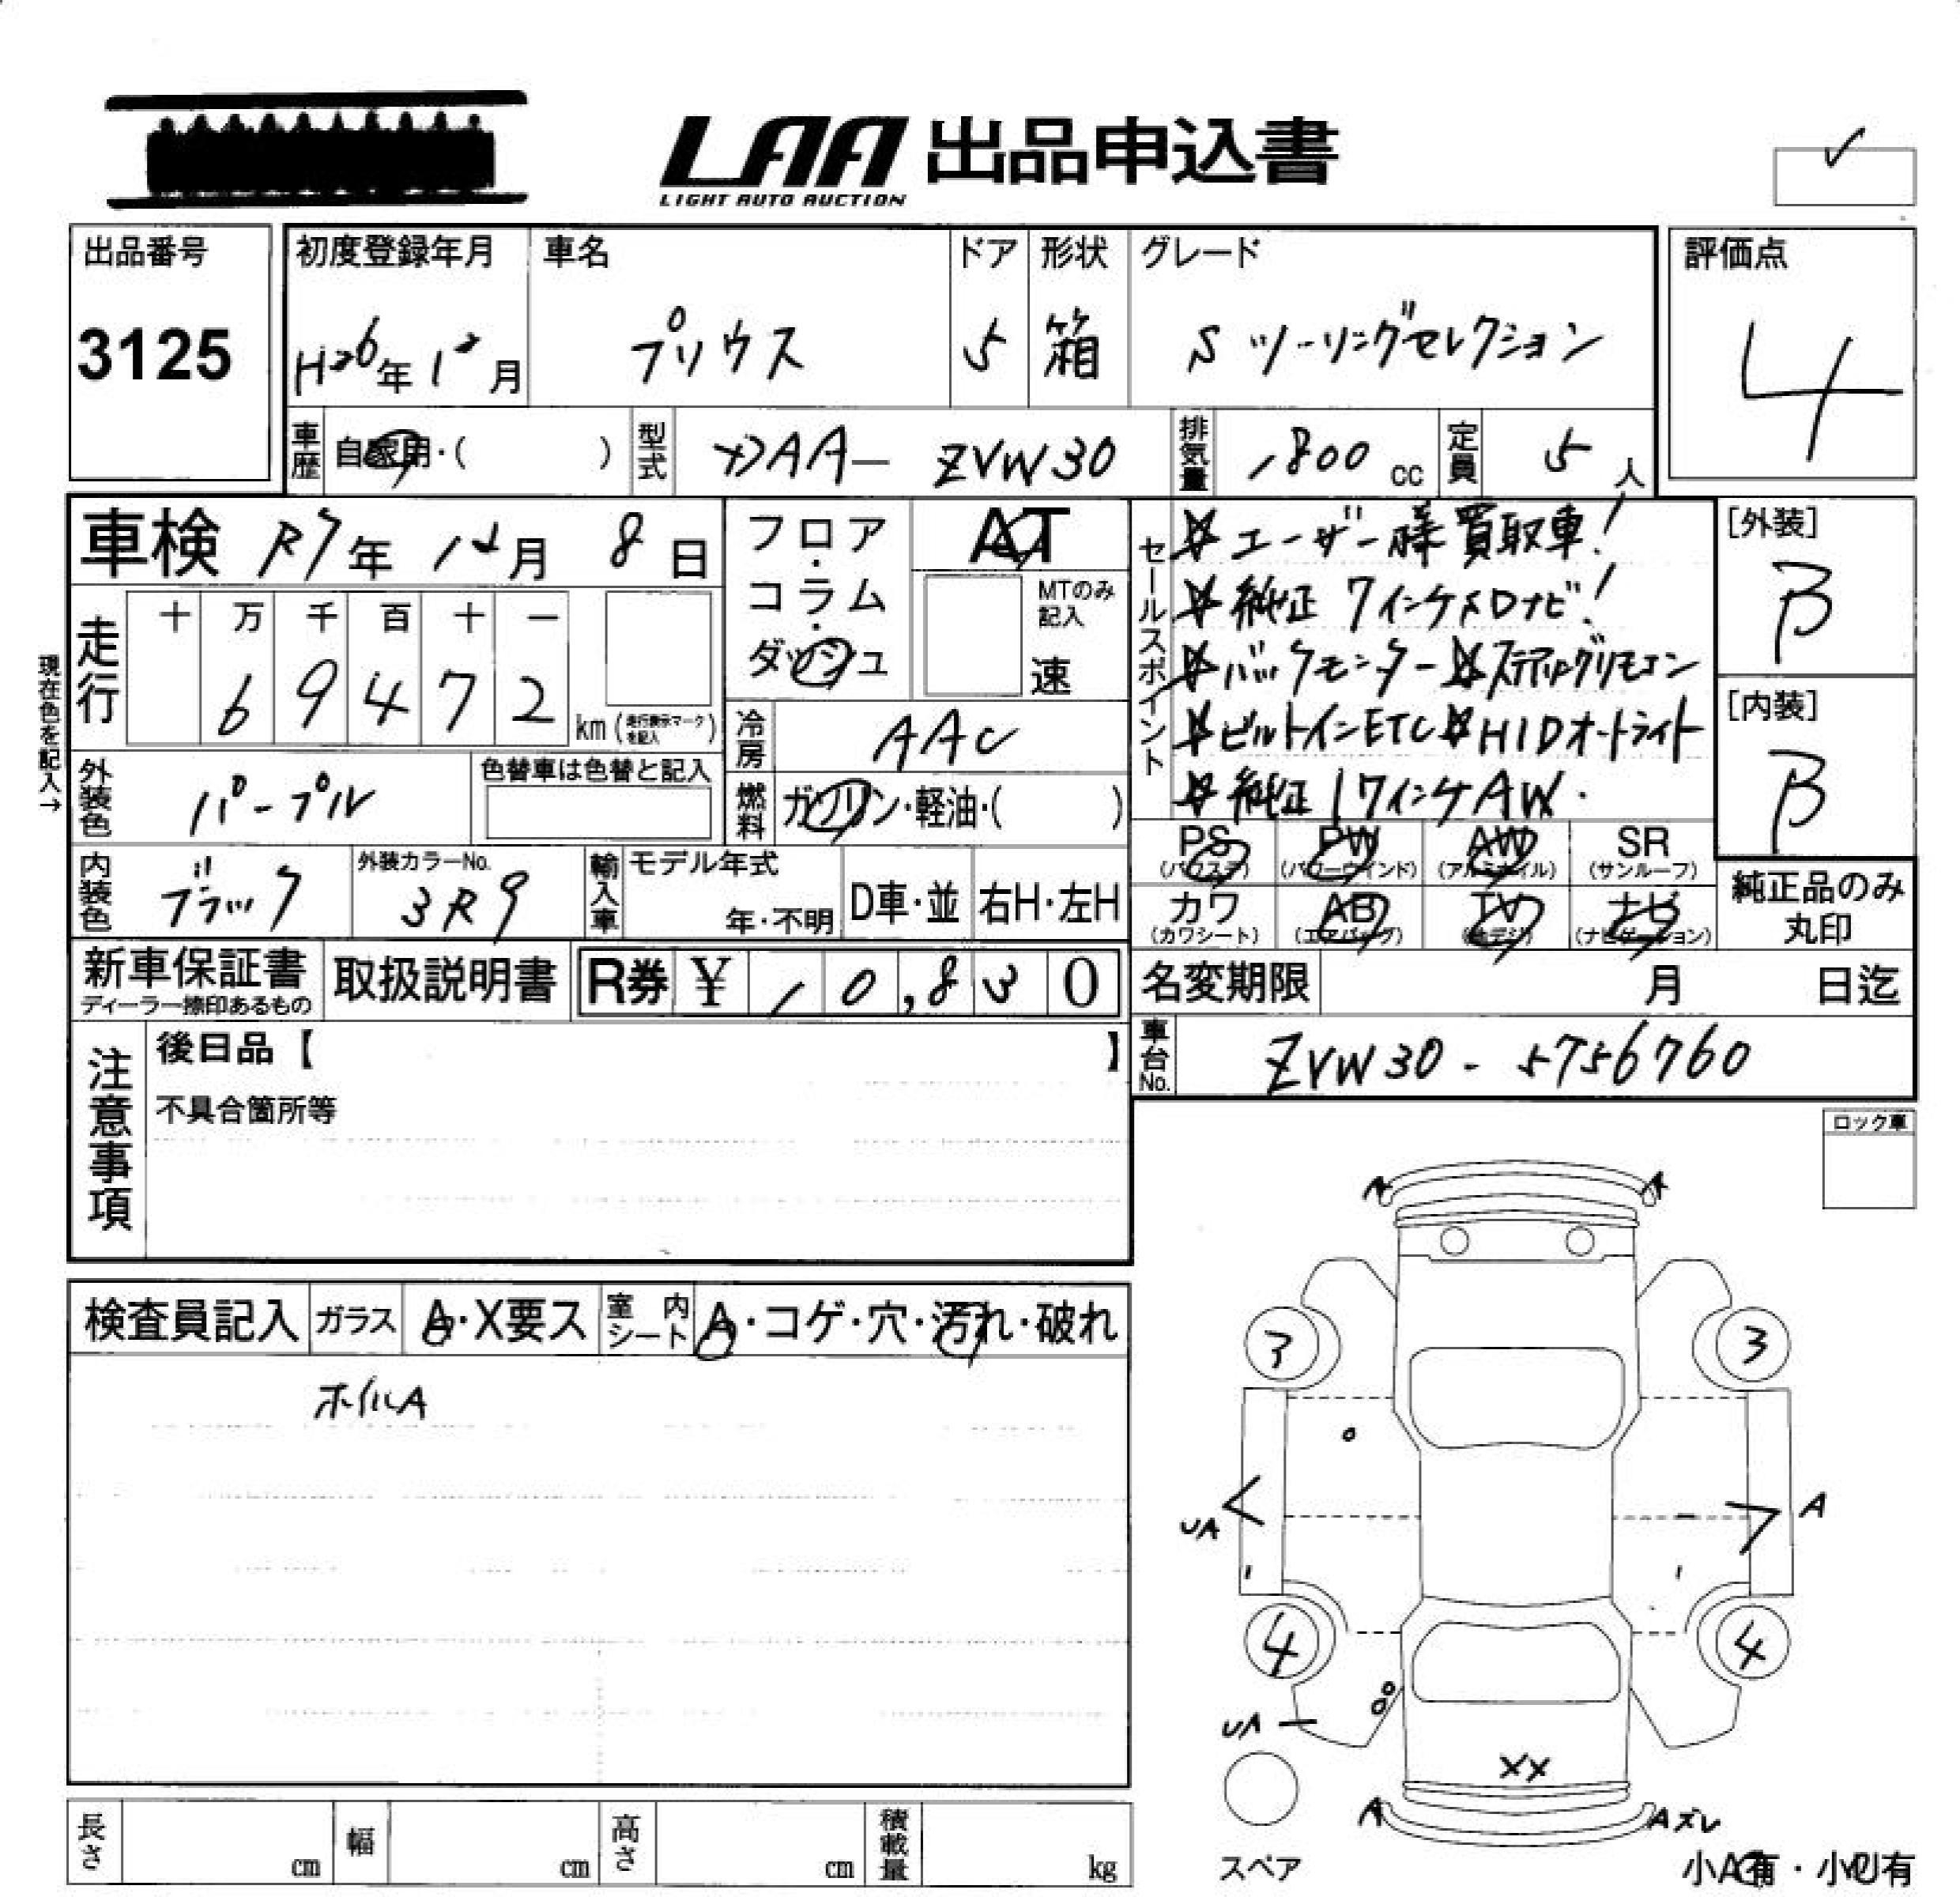 LAA 出品申込書
LIGHT AUTO AUCTION
出品番号
3125
初度登録年月
H26年12月
車名
プリウス
ドア
5
形状
箱
グレード
Sツーリングセレクション
評価点
4
車歴
自家用・( )
型式
DAA-ZVW30
排気量
1800 cc
定員
5人
車検 R7年12月8日
フロア・コラム・ダッシュ
AT
MTのみ記入
速
セールスポイント
☆ユーザー様買取車!
☆純正7インチメDナビ!
☆バックモニター☆ステアリングリモコン
☆ビルトインETC☆HIDオートライト
☆純正17インチAW.
[外装]
B
[内装]
B
現在色を記入→
走行
十 万 千 百 十 一
6 9 4 7 2 km (走行表示マークを記入)
冷房
AAC
外装色
パープル
色替車は色替と記入
燃料
ガソリン・軽油・( )
PS (パワステ)
PW (パワーウインド)
AW (アルミホイル)
SR (サンルーフ)
カワ (カワシート)
AB (エアバッグ)
TV (地デジ)
ナビ (ナビゲーション)
純正品のみ丸印
内装色
ブラック
外装カラーNo.
3R9
輸入車
モデル年式
年・不明
D車・並
右H・左H
新車保証書
ディーラー捺印あるもの
取扱説明書
R券 ¥10,830
名変期限 月 日迄
車台No.
ZVW30-5756760
注意事項
後日品【 】
不具合箇所等
ロック車
検査員記入
ガラス
A・X要ス
室内シート
A・コゲ・穴・汚れ・破れ
ホイルA
A
A
3
3
UA
A
4
4
UA
XX
A
Aズレ
スペア
小A有・小U有
長さ cm
幅 cm
高さ cm
積載量 kg